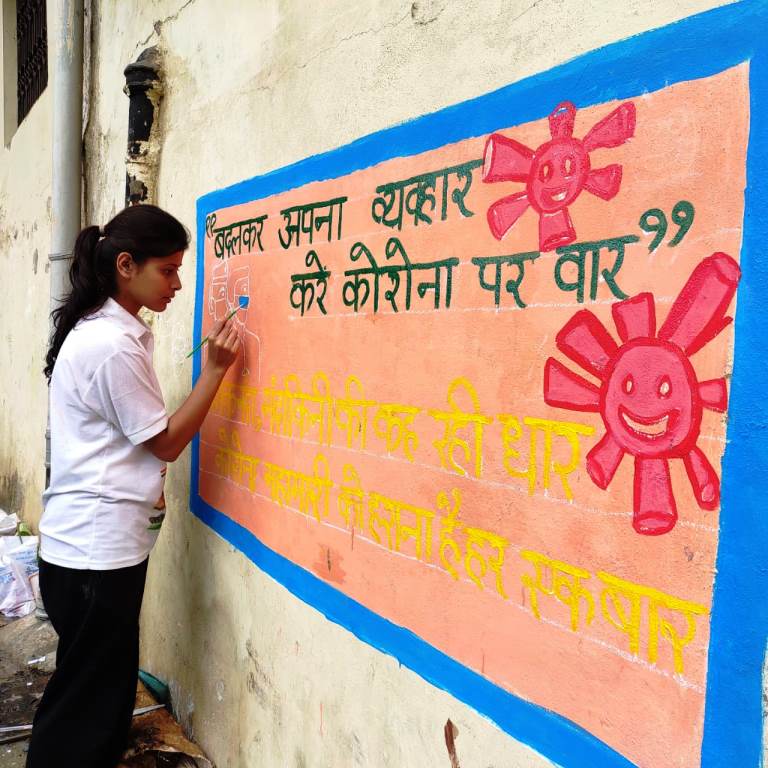 “बदलकर अपना व्यवहार
करे कोरोना पर वार”
मंदाकिनी की कह रही धार
कोरोना महामारी को हराना है हर एक बार